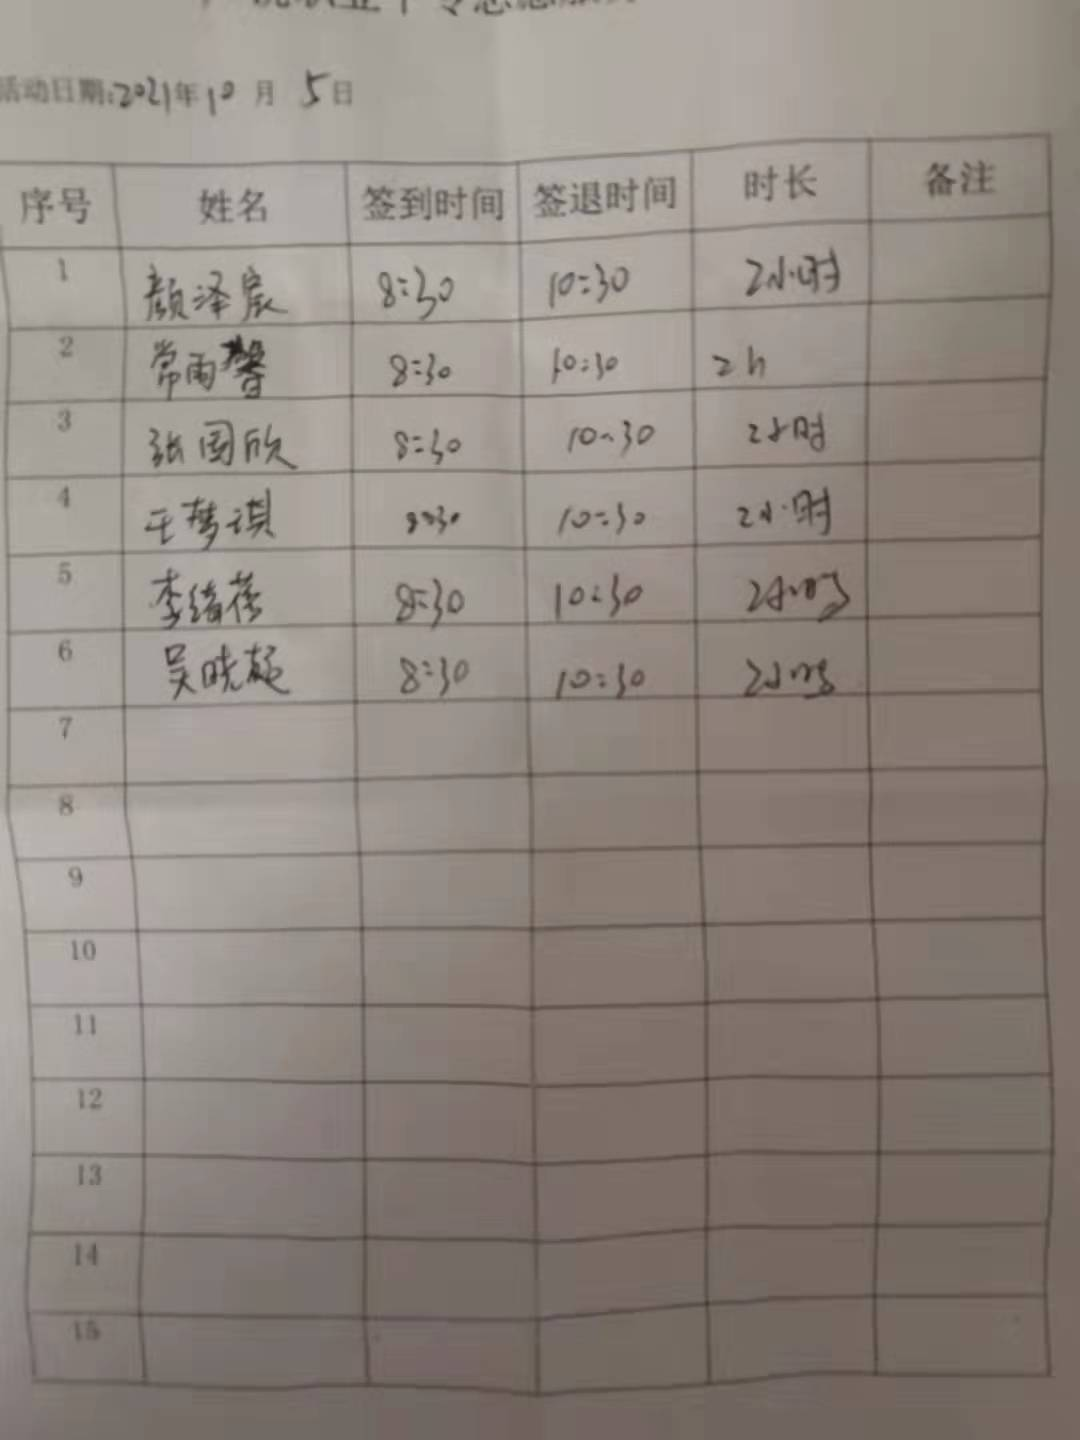 活动日期:2021年10月5日
序号 姓名 签到时间 签退时间 时长 备注
1 颜泽宸 8:30 10:30 2小时
2 常雨馨 8:30 10:30 2h
3 张国欣 8:30 10:30 2小时
4 王梦琪 8:30 10:30 2小时
5 李绪蓓 8:30 10:30 2小时
6 吴晓 8:30 10:30 2小时
7
8
9
10
11
12
13
14
15